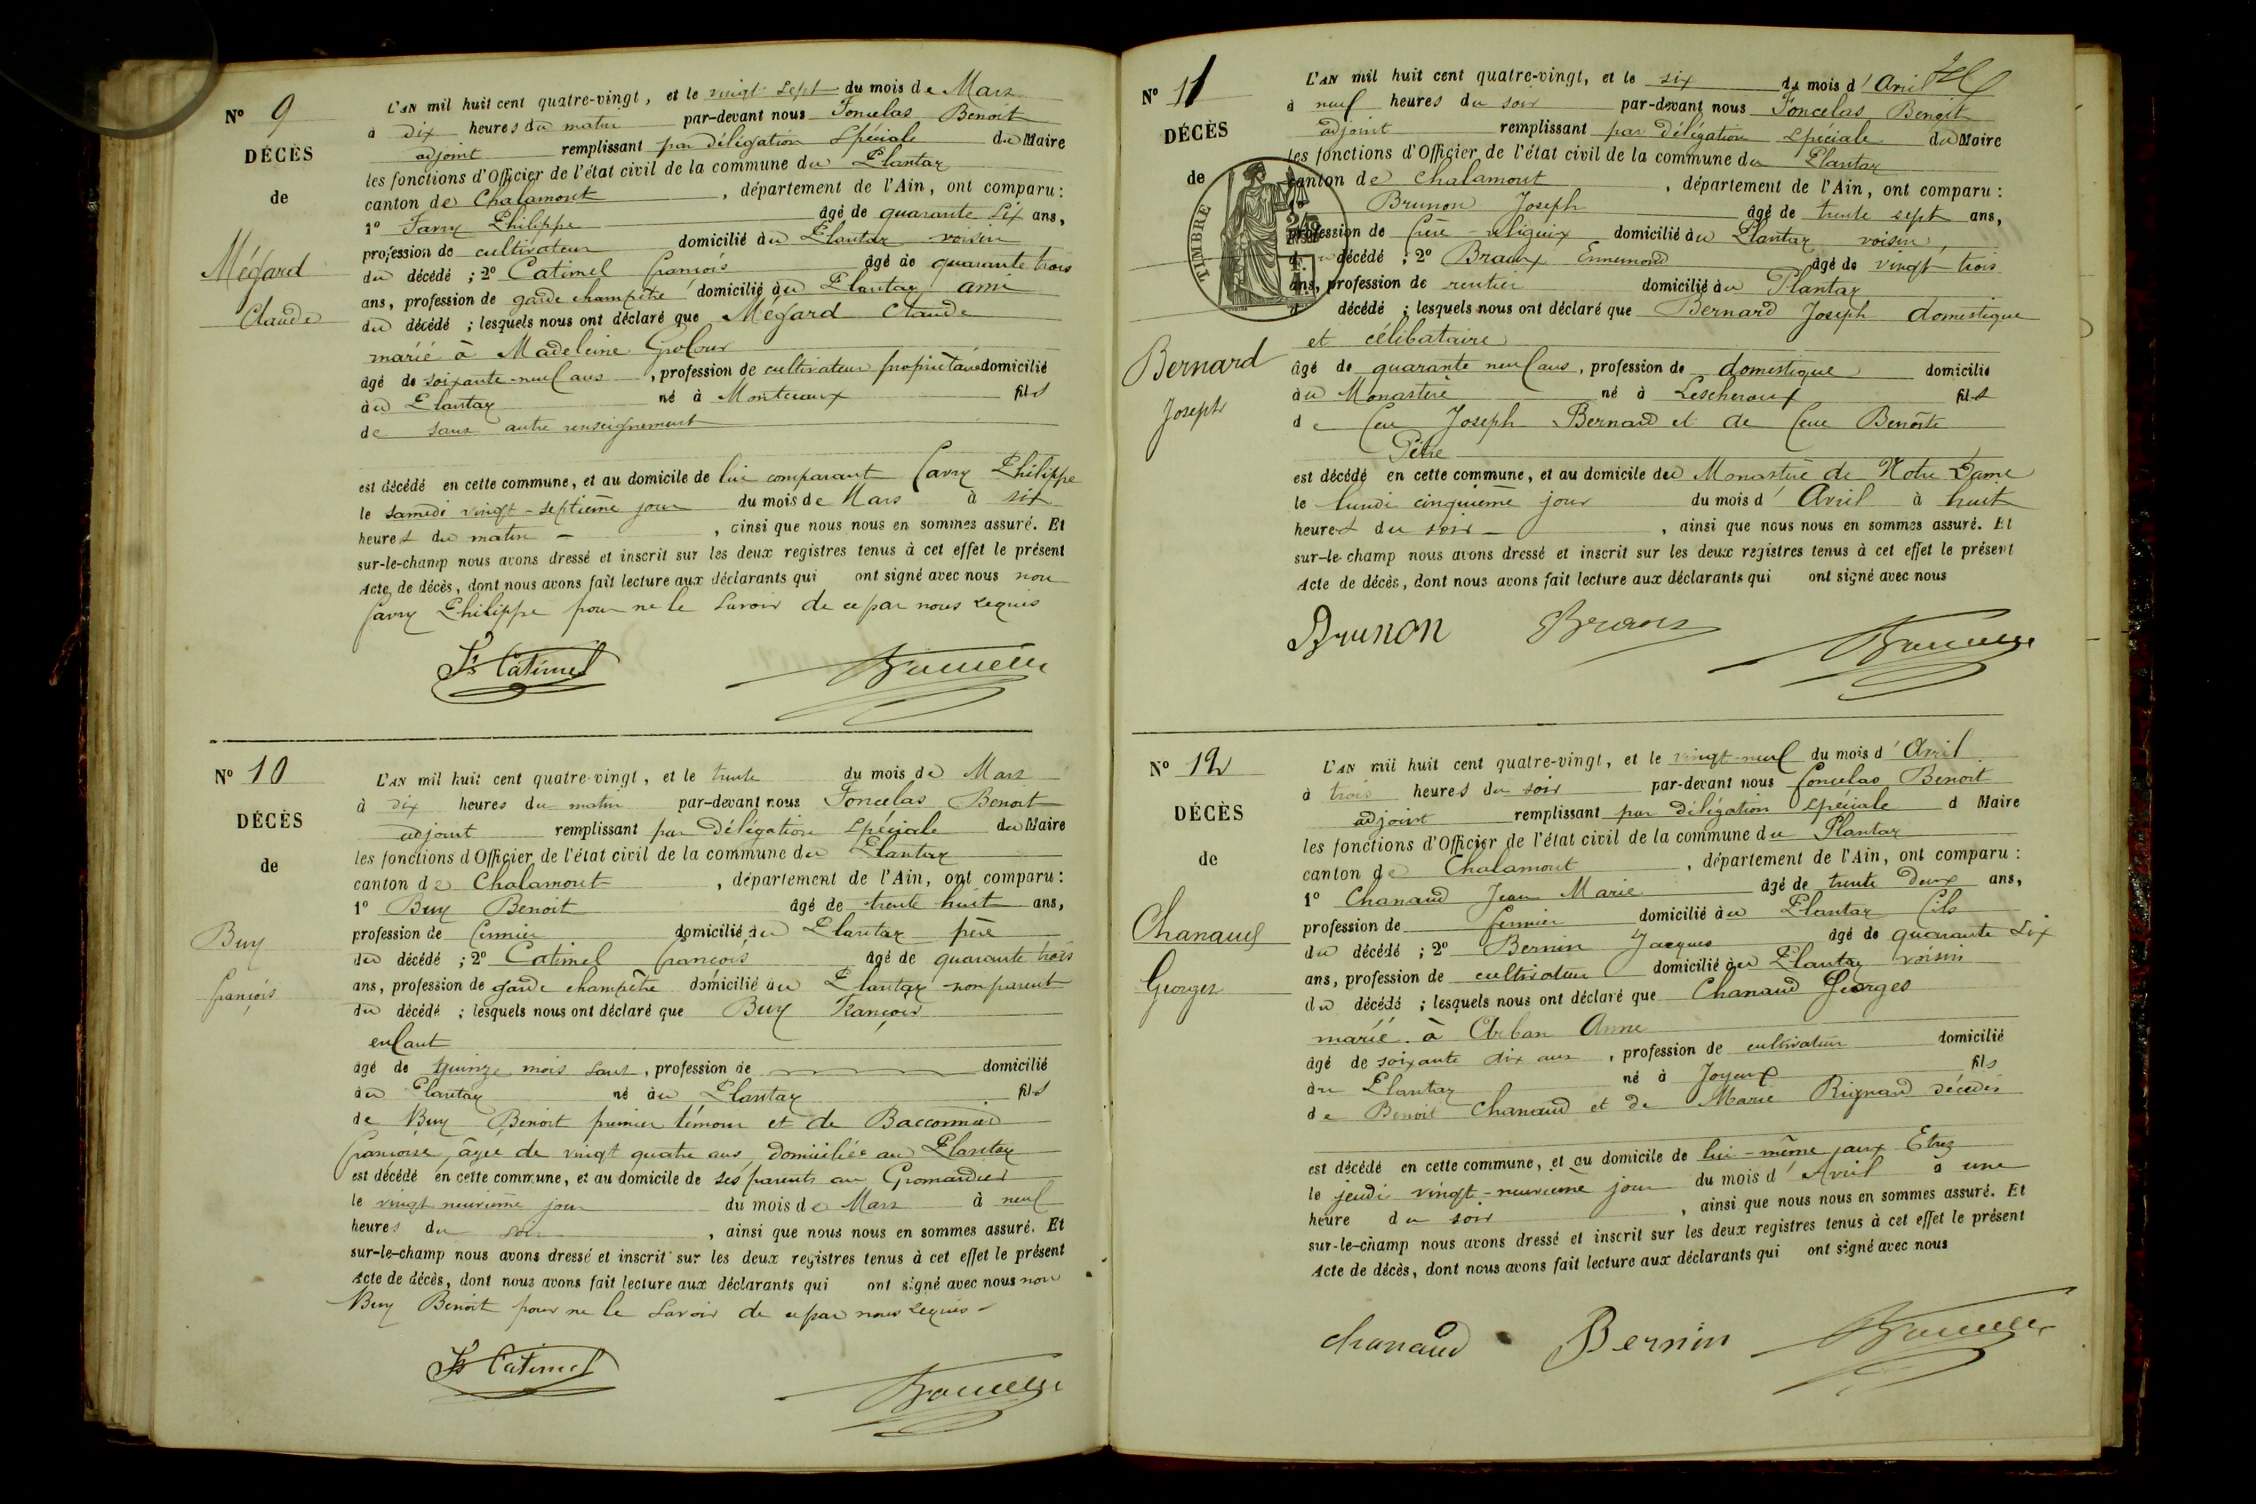 N° 9
DÉCÈS
de
Mégard
Claude
L'AN mil huit cent quatre-vingt, et le vingt sept du mois de Mars
à dix heures du matin par-devant nous Foncelas Benoit
adjoint remplissant par délégation spéciale du Maire
les fonctions d'Officier de l'état civil de la commune du Plantay
canton de Chalamont, département de l'Ain, ont comparu :
1° Favry Philippe âgé de quarante six ans,
profession de cultivateur domicilié au Plantay voisin
du décédé ; 2° Catimel françois âgé de quarante trois
ans, profession de garde champêtre domicilié au Plantay ami
du décédé ; lesquels nous ont déclaré que Mégard Claude
marié à Madeleine
âgé de soixante-neuf ans, profession de cultivateur propriétaire domicilié
au Plantay né à Montceaux fils
de sans autre renseignement
est décédé en cette commune, et au domicile de lui comparant favry Philippe
le samedi vingt-septième jour du mois de Mars à six
heures du matin -, ainsi que nous nous en sommes assuré. Et
sur-le-champ nous avons dressé et inscrit sur les deux registres tenus à cet effet le présent
Acte de décès, dont nous avons fait lecture aux déclarants qui ont signé avec nous non
favry Philippe pour ne le savoir de ce par nous requis
Fs Catimel
N° 10
DÉCÈS
de
Buy
françois
L'AN mil huit cent quatre-vingt, et le trente du mois de Mars
à dix heures du matin par-devant nous Foncelas Benoit
adjoint remplissant par délégation spéciale du Maire
les fonctions d'Officier de l'état civil de la commune du Plantay
canton de Chalamont, département de l'Ain, ont comparu :
1° Buy Benoit âgé de trente huit ans,
profession de fermier domicilié au Plantay père
du décédé ; 2° Catimel françois âgé de quarante trois
ans, profession de garde champêtre domicilié au Plantay non parent
du décédé ; lesquels nous ont déclaré que Buy François
enfant
âgé de quinze mois sans, profession de domicilié
au Plantay né au Plantay fils
de Buy Benoit premier témoin et de Bacconnier
françoise, âgée de vingt quatre ans, domiciliée au Plantay
est décédé en cette commune, et au domicile de ses parents au
le vingt neuvième jour du mois de Mars à neuf
heures du soir, ainsi que nous nous en sommes assuré. Et
sur-le-champ nous avons dressé et inscrit sur les deux registres tenus à cet effet le présent
Acte de décès, dont nous avons fait lecture aux déclarants qui ont signé avec nous non
Buy Benoit pour ne le savoir de ce par nous requis
Fs Catimel
N° 11
DÉCÈS
de
TIMBRE
Bernard
Joseph
L'AN mil huit cent quatre-vingt, et le six du mois d'Avril
à neuf heures du soir par-devant nous Foncelas Benoit
adjoint remplissant par délégation spéciale du Maire
les fonctions d'Officier de l'état civil de la commune du Plantay
canton de Chalamont, département de l'Ain, ont comparu :
1° Brunon Joseph âgé de trente sept ans,
profession de frère religieux domicilié au Plantay voisin,
du décédé ; 2° Braux Ennemond âgé de vingt trois
ans, profession de rentier domicilié au Plantay
d décédé ; lesquels nous ont déclaré que Bernard Joseph domestique
et célibataire
âgé de quarante neuf ans, profession de domestique domicilié
au Monastère né à Lescheroux fils
de feu Joseph Bernard et de feue Benoite
Pétre
est décédé en cette commune, et au domicile du Monastère de Notre Dame
le lundi cinquième jour du mois d'Avril à huit
heures du soir -, ainsi que nous nous en sommes assuré. Et
sur-le-champ nous avons dressé et inscrit sur les deux registres tenus à cet effet le présent
Acte de décès, dont nous avons fait lecture aux déclarants qui ont signé avec nous
Brunon Braux
N° 12
DÉCÈS
de
Chanaud
Georges
L'AN mil huit cent quatre-vingt, et le vingt-neuf du mois d'Avril
à trois heures du soir par-devant nous foncelas Benoit
adjoint remplissant par délégation spéciale d Maire
les fonctions d'Officier de l'état civil de la commune du Plantay
canton de Chalamont, département de l'Ain, ont comparu :
1° Chanaud Jean Marie âgé de trente deux ans,
profession de fermier domicilié au Plantay fils
du décédé ; 2° Bernin Jacques âgé de quarante six
ans, profession de cultivateur domicilié au Plantay voisin
du décédé ; lesquels nous ont déclaré que Chanaud Georges
marié à Arban Anne
âgé de soixante dix ans, profession de cultivateur domicilié
au Plantay né à Joyeux fils
de Benoit Chanaud et de Marie Rignard décédés
est décédé en cette commune, et au domicile de lui-même aux Etrez
le jeudi vingt-neuvième jour du mois d'Avril à une
heure du soir, ainsi que nous nous en sommes assuré. Et
sur-le-champ nous avons dressé et inscrit sur les deux registres tenus à cet effet le présent
Acte de décès, dont nous avons fait lecture aux déclarants qui ont signé avec nous
Chanaud Bernin